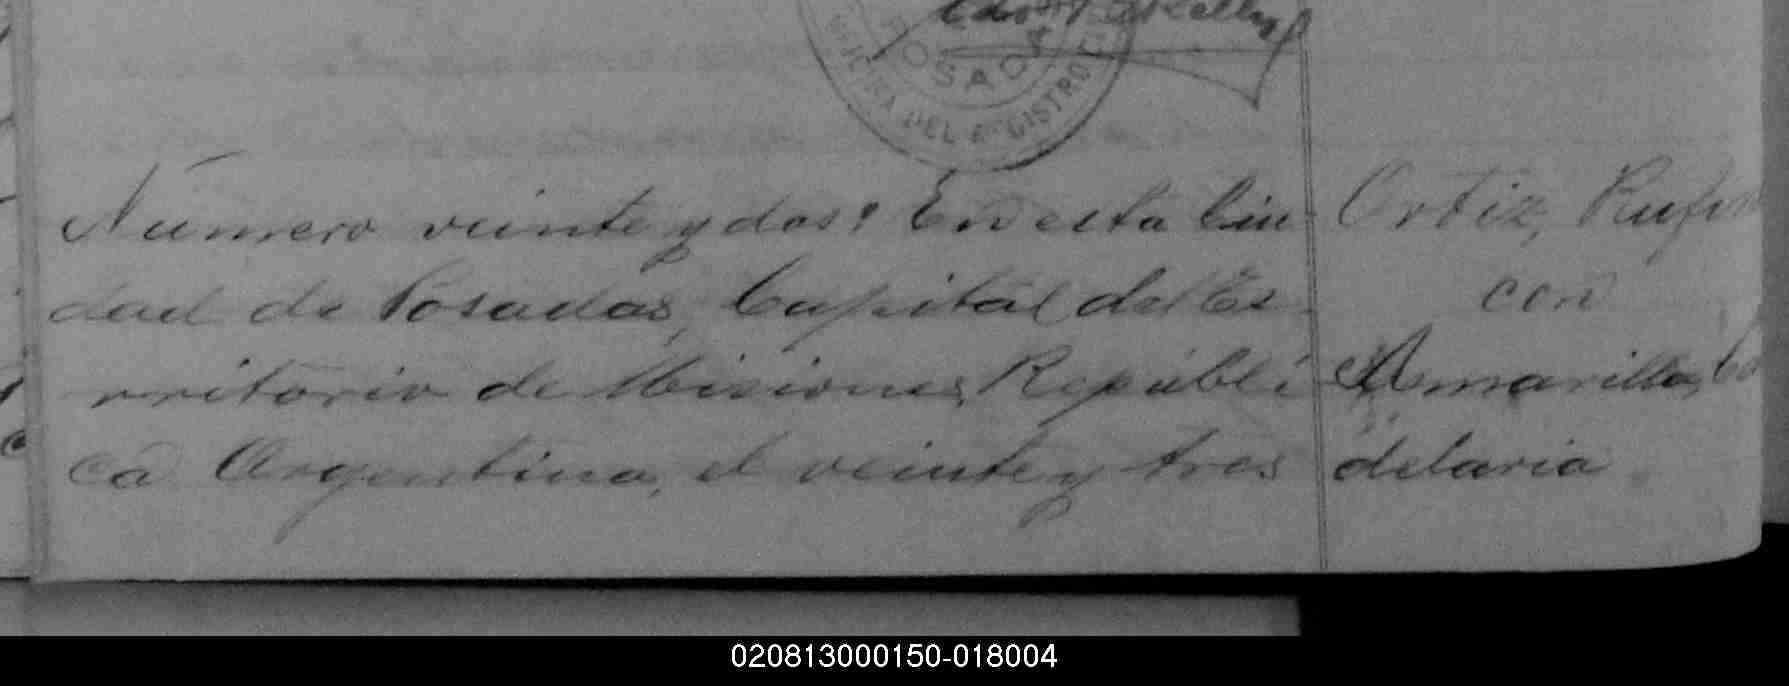 POSADAS
OFICINA DEL REGISTRO CIVIL
Número veinte y dos: En esta Ciu-
dad de Posadas, Capital del Te-
rritorio de Misiones, Repúbli-
ca Argentina, el veinte y tres
Ortiz, Rufin
con
Amarilla, Ca
delaria.
020813000150-018004